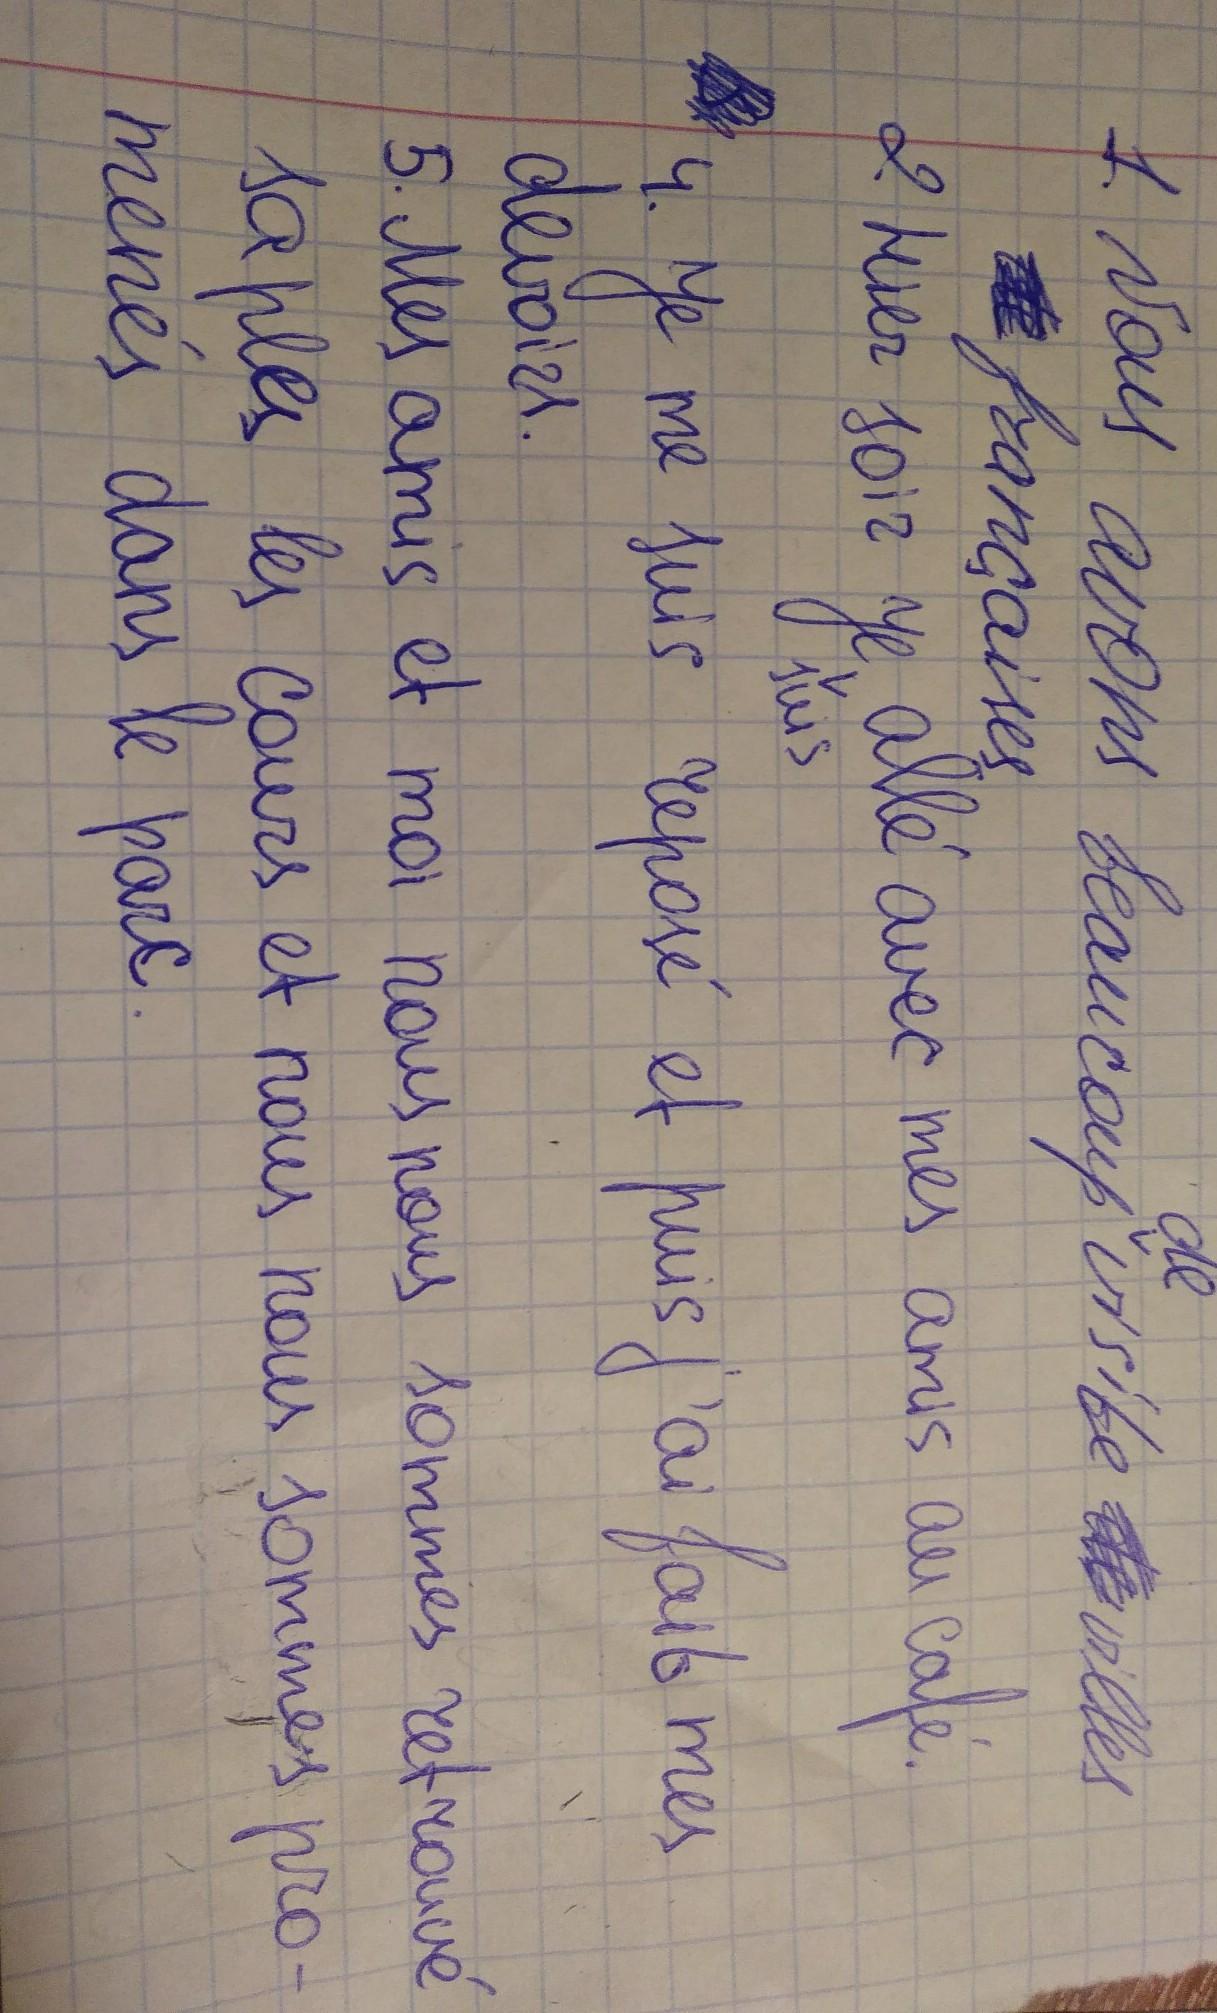 1. Nous avons beaucoup de visible villes
françaises
2. Hier soir je suis allé avec mes amis au café.
4. Je me suis reposé et puis j'ai fait mes
devoirs.
5. Mes amis et moi nous nous sommes retrouvé
saples les cours et nous nous sommes pro-
menés dans le parc.